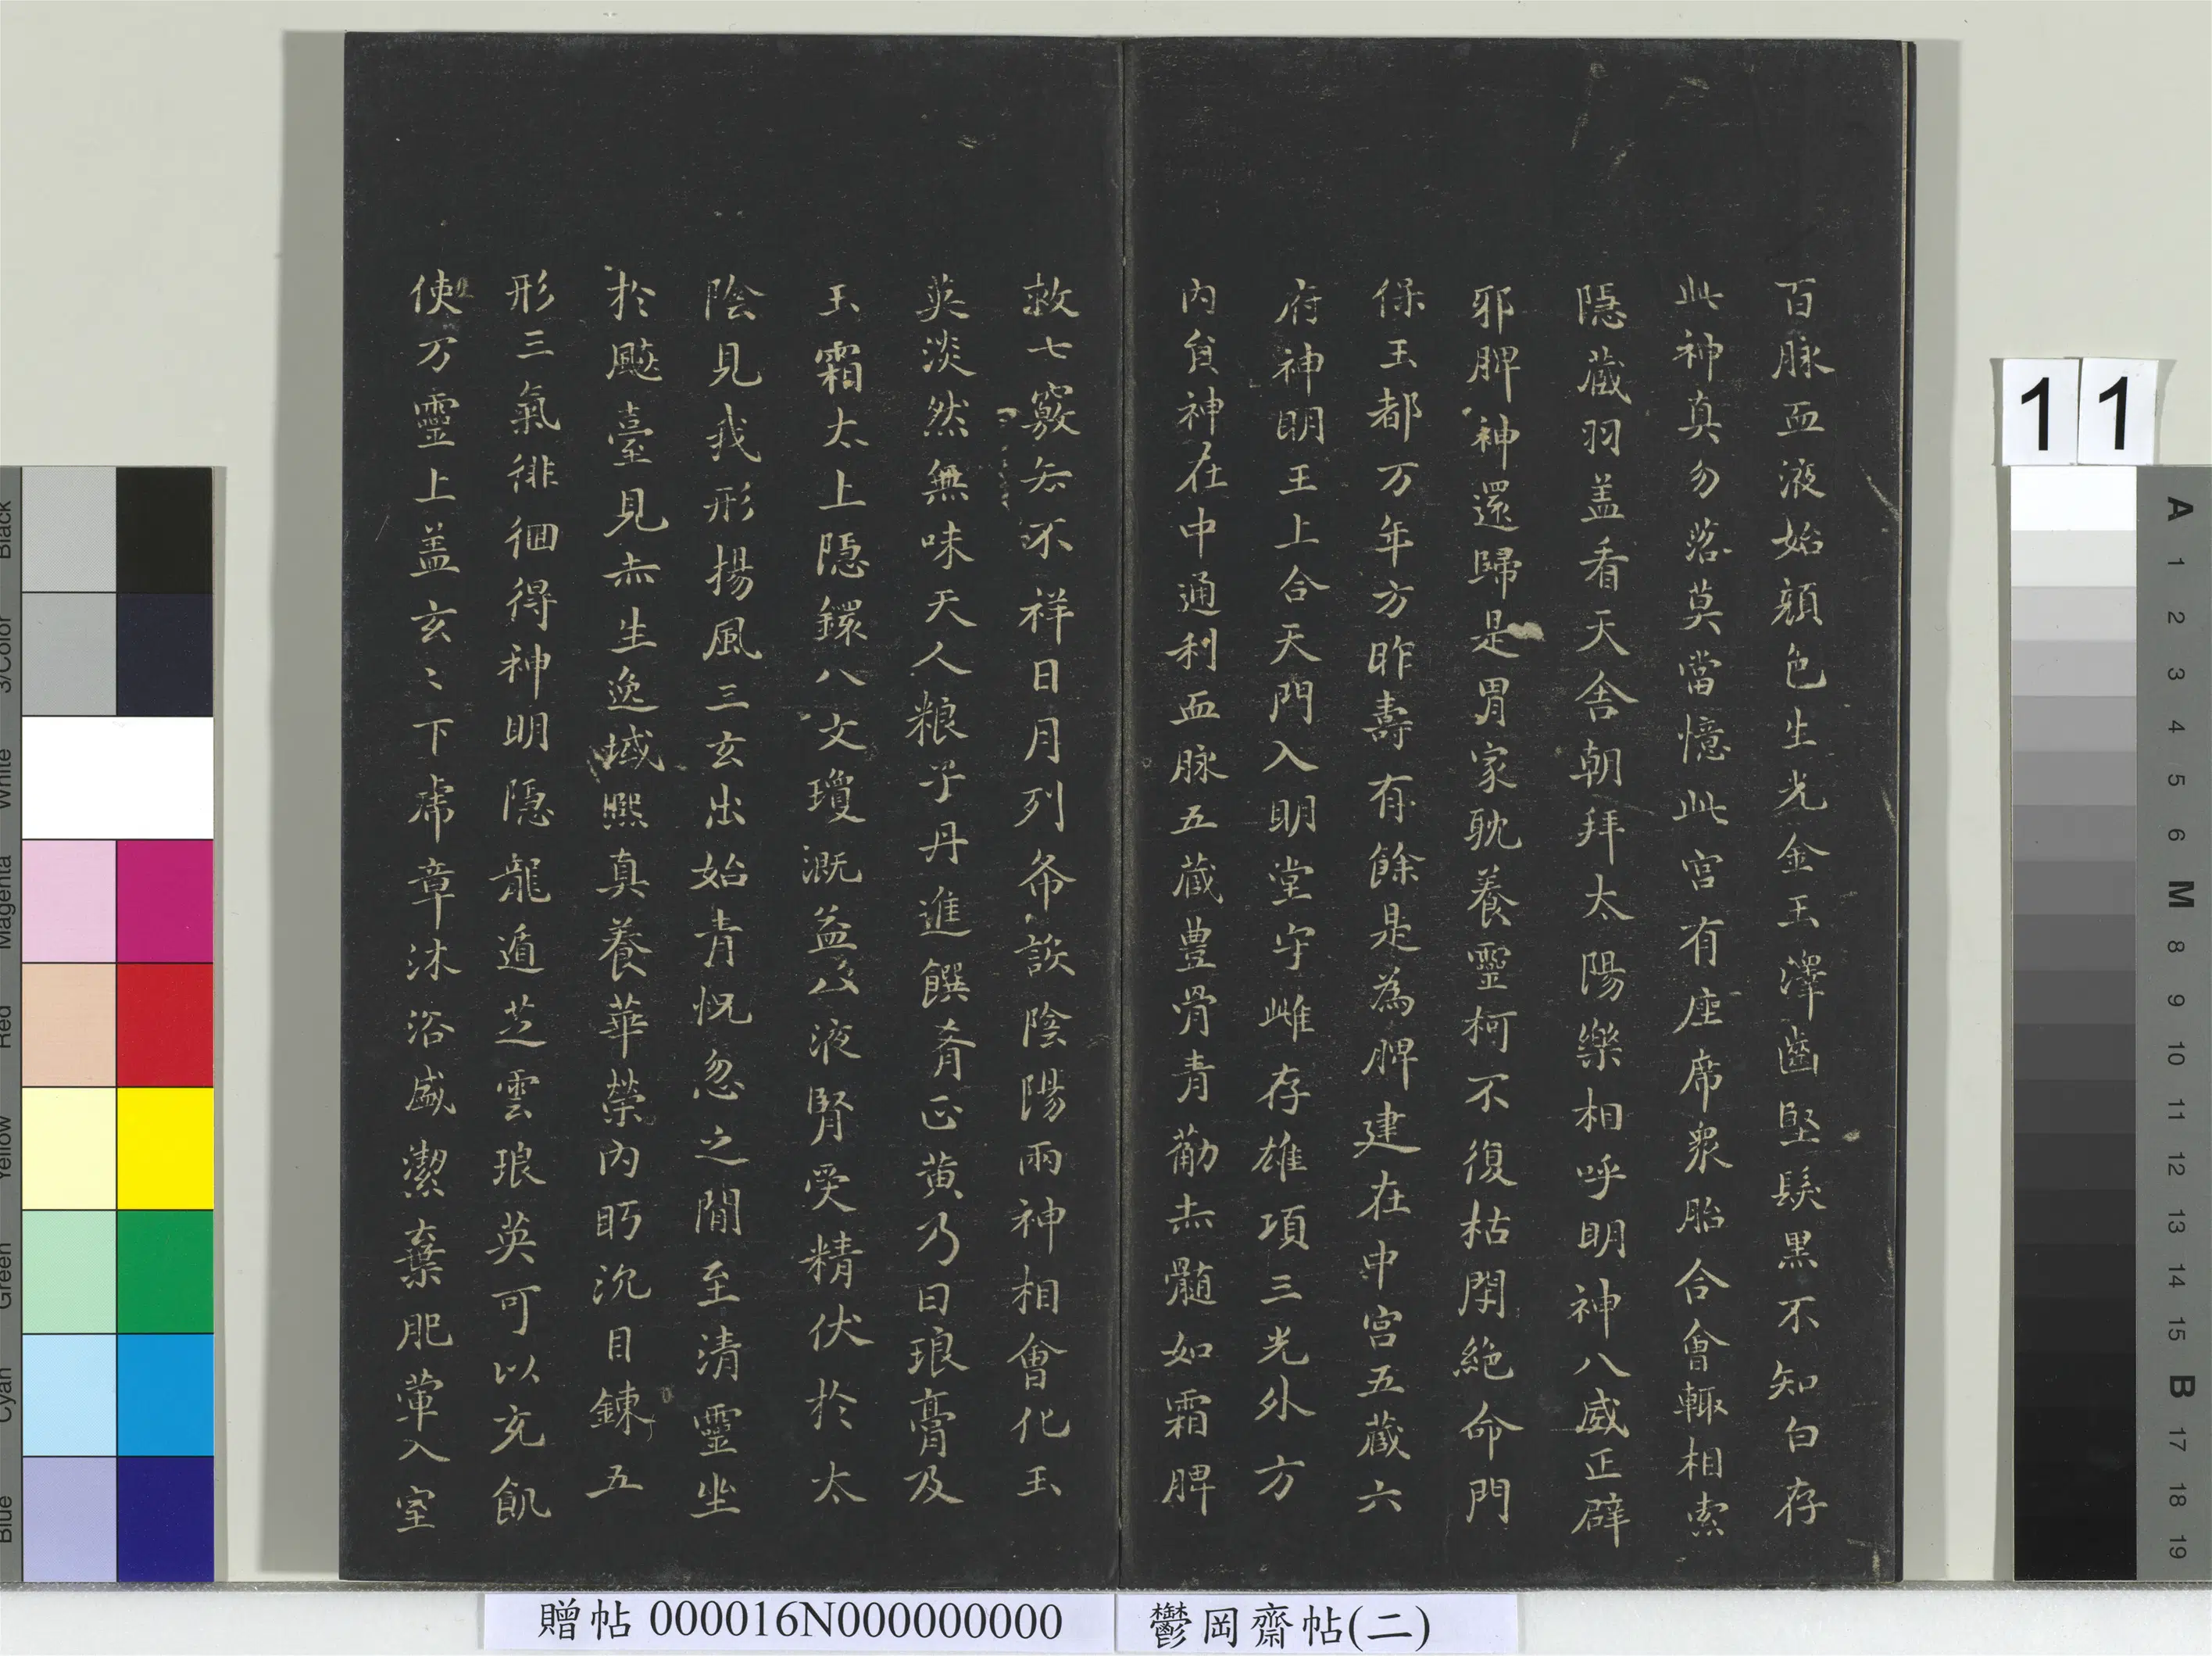 百脉血液始顏色生光金玉澤齒堅髮黑不知白存
此神真勿落莫當憶此宮有座席衆胎合會輙相索
隱蔵羽盖看天舍朝拜太陽樂相呼明神八威正辟
邪脾神還歸是胃家耽養靈柯不復枯閇絕命門
保玉都万年方昨壽有餘是為脾建在中宮五蔵六
府神明王上合天門入明堂守雌存雄項三光外方
內負神在中通利血脉五蔵豊骨青勸赤髓如霜脾
救七竅去不祥日月列布設陰陽兩神相會化玉
英淡然無味天人粮子丹進饌肴正黃乃曰琅膏及
玉霜太上隱鐶八文瓊溉益八液腎受精伏於太
陰見我形揚風三玄出始青怳忽之間至清靈坐
於飈臺見赤生逸域熙真養華榮內盻沉目錬五
形三氣徘徊得神明隱龍遁芝雲琅英可以充飢
使万靈上盖玄〻下席章沐浴盛潔棄肥葷入室
11
贈帖 000016N000000000
鬱岡齋帖(二)
Black
3/Color
White
Magenta
Red
Yellow
Green
Cyan
Blue
A
1
2
3
4
5
6
M
8
9
10
11
12
13
14
15
B
17
18
19